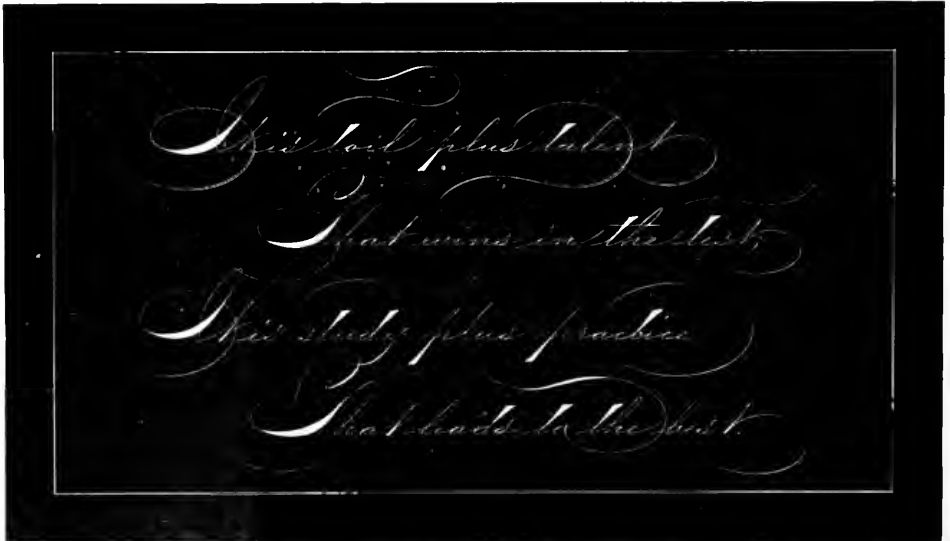 This toil plus talent
That wins in the test,
This study plus practice
That leads to the best.